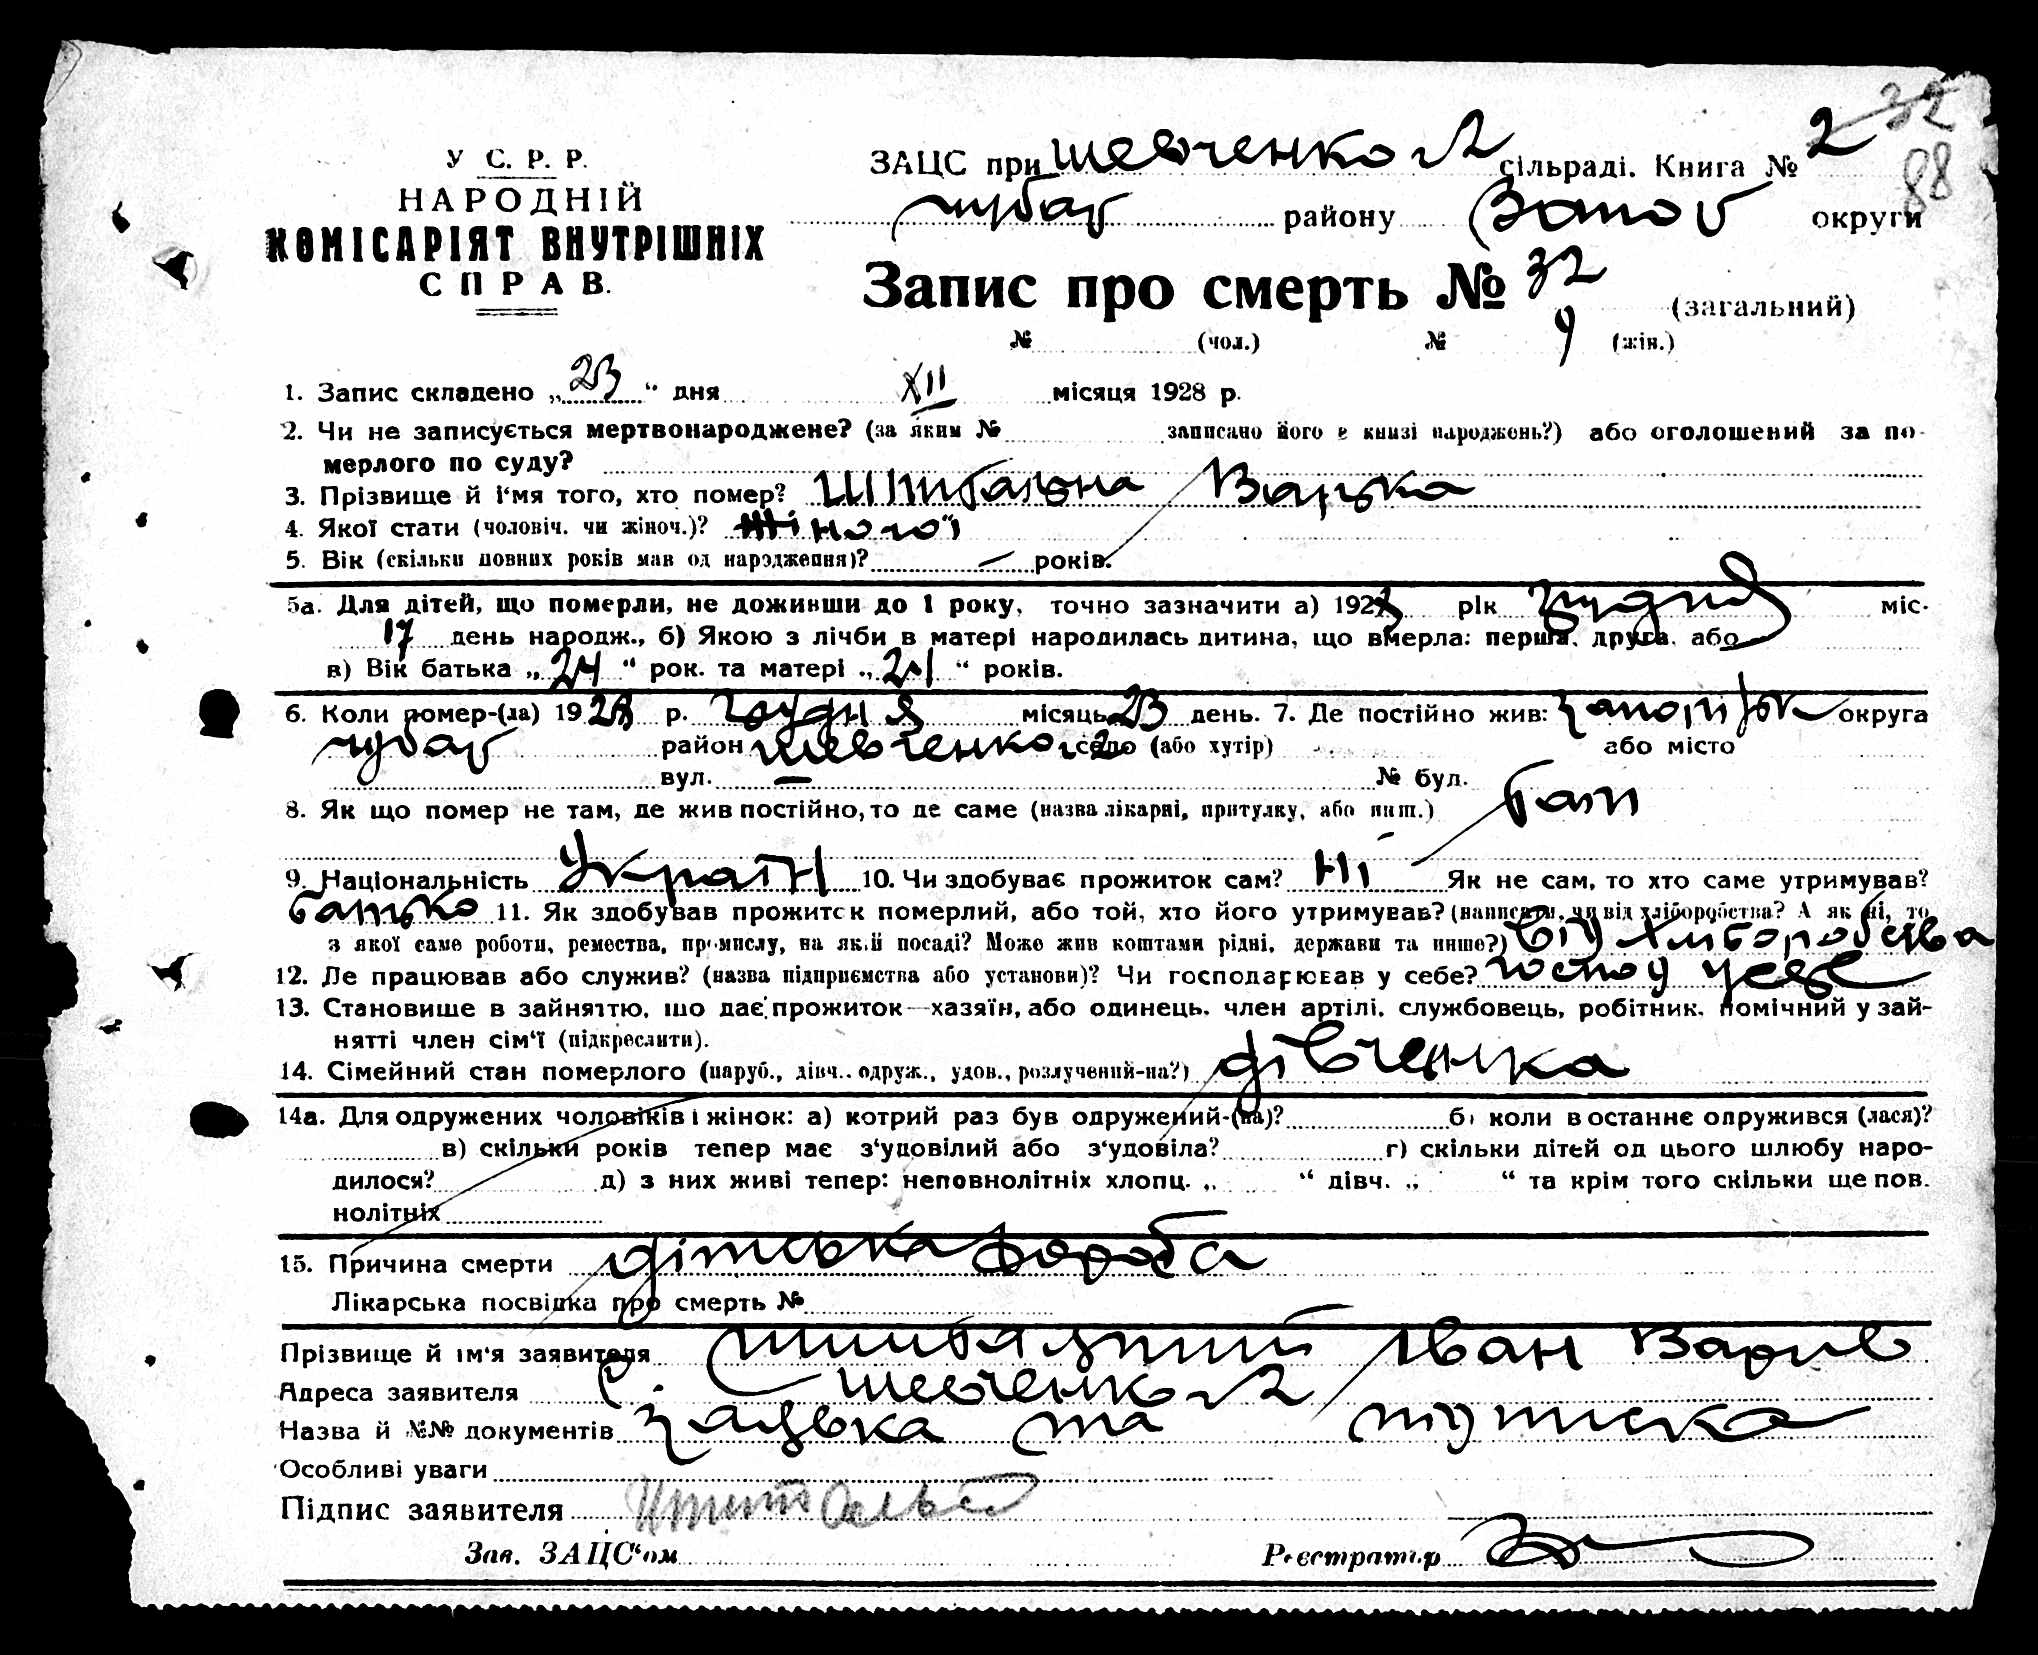 У С. Р. Р.
НАРОДНІЙ
КОМІСАРІЯТ ВНУТРІШНІХ
СПРАВ.
32
88
ЗАЦС при Шевченко №2 сільраді. Книга № 2
Чубар району Запор округи
Запис про смерть № 32 (загальний)
№ (чол.) № 9 (жін.)
1. Запис складено „23“ дня XII місяця 1928 р.
2. Чи не записується мертвонароджене? (за яким № записано його в книзі народжень?) або оголошений за по-
мерлого по суду?
3. Прізвище й ім'я того, хто помер? Варька
4. Якої стати (чоловіч. чи жіноч.)? Жіночої
5. Вік (скільки повних років мав од народження)? — років.
5а. Для дітей, що померли, не доживши до 1 року, точно зазначити а) 1928 рік грудня міс.
17 день народж., б) Якою з лічби в матері народилась дитина, що вмерла: перша, друга, або
в) Вік батька „24“ рок. та матері „21“ років.
6. Коли помер-(ла) 1928 р. грудня місяць 23 день. 7. Де постійно жив: Запоріжж округа
Чубар район Шевченко №2 село (або хутір) або місто
вул. — № буд.
8. Як що помер не там, де жив постійно, то де саме (назва лікарні, притулку, або инш.)
9. Національність Україн 10. Чи здобуває прожиток сам? Ні Як не сам, то хто саме утримував?
батько 11. Як здобував прожиток померлий, або той, хто його утримував? (написати, чи від хліборобства? А як ні, то
з якої саме роботи, ремества, промислу, на якій посаді? Може жив коштами рідні, держави та инше?) Від хліборобства
12. Де працював або служив? (назва підприємства або установи)? Чи господарював у себе? госпо у себе
13. Становище в зайняттю, що дає прожиток—хазяїн, або одинець, член артілі, службовець, робітник, помічний у зай-
нятті член сім'ї (підкреслити).
14. Сімейний стан померлого (паруб., дівч., одруж., удов., розлучений-на?) дівченка
14а. Для одружених чоловіків і жінок: а) котрий раз був одружений-(на)? б) коли в останнє одружився (лася)?
в) скільки років тепер має з'удовілий або з'удовіла? г) скільки дітей од цього шлюбу наро-
дилося? д) з них живі тепер: неповнолітніх хлопц. „ “ дівч. „ “ та крім того скільки ще пов.
нолітніх
15. Причина смерти дітська
Лікарська посвідка про смерть №
Прізвище й ім'я заявителя Іван
Адреса заявителя С. Шевченко №2
Назва й №№ документів
Особливі уваги
Підпис заявителя
Зав. ЗАЦС'ом Реєстратор